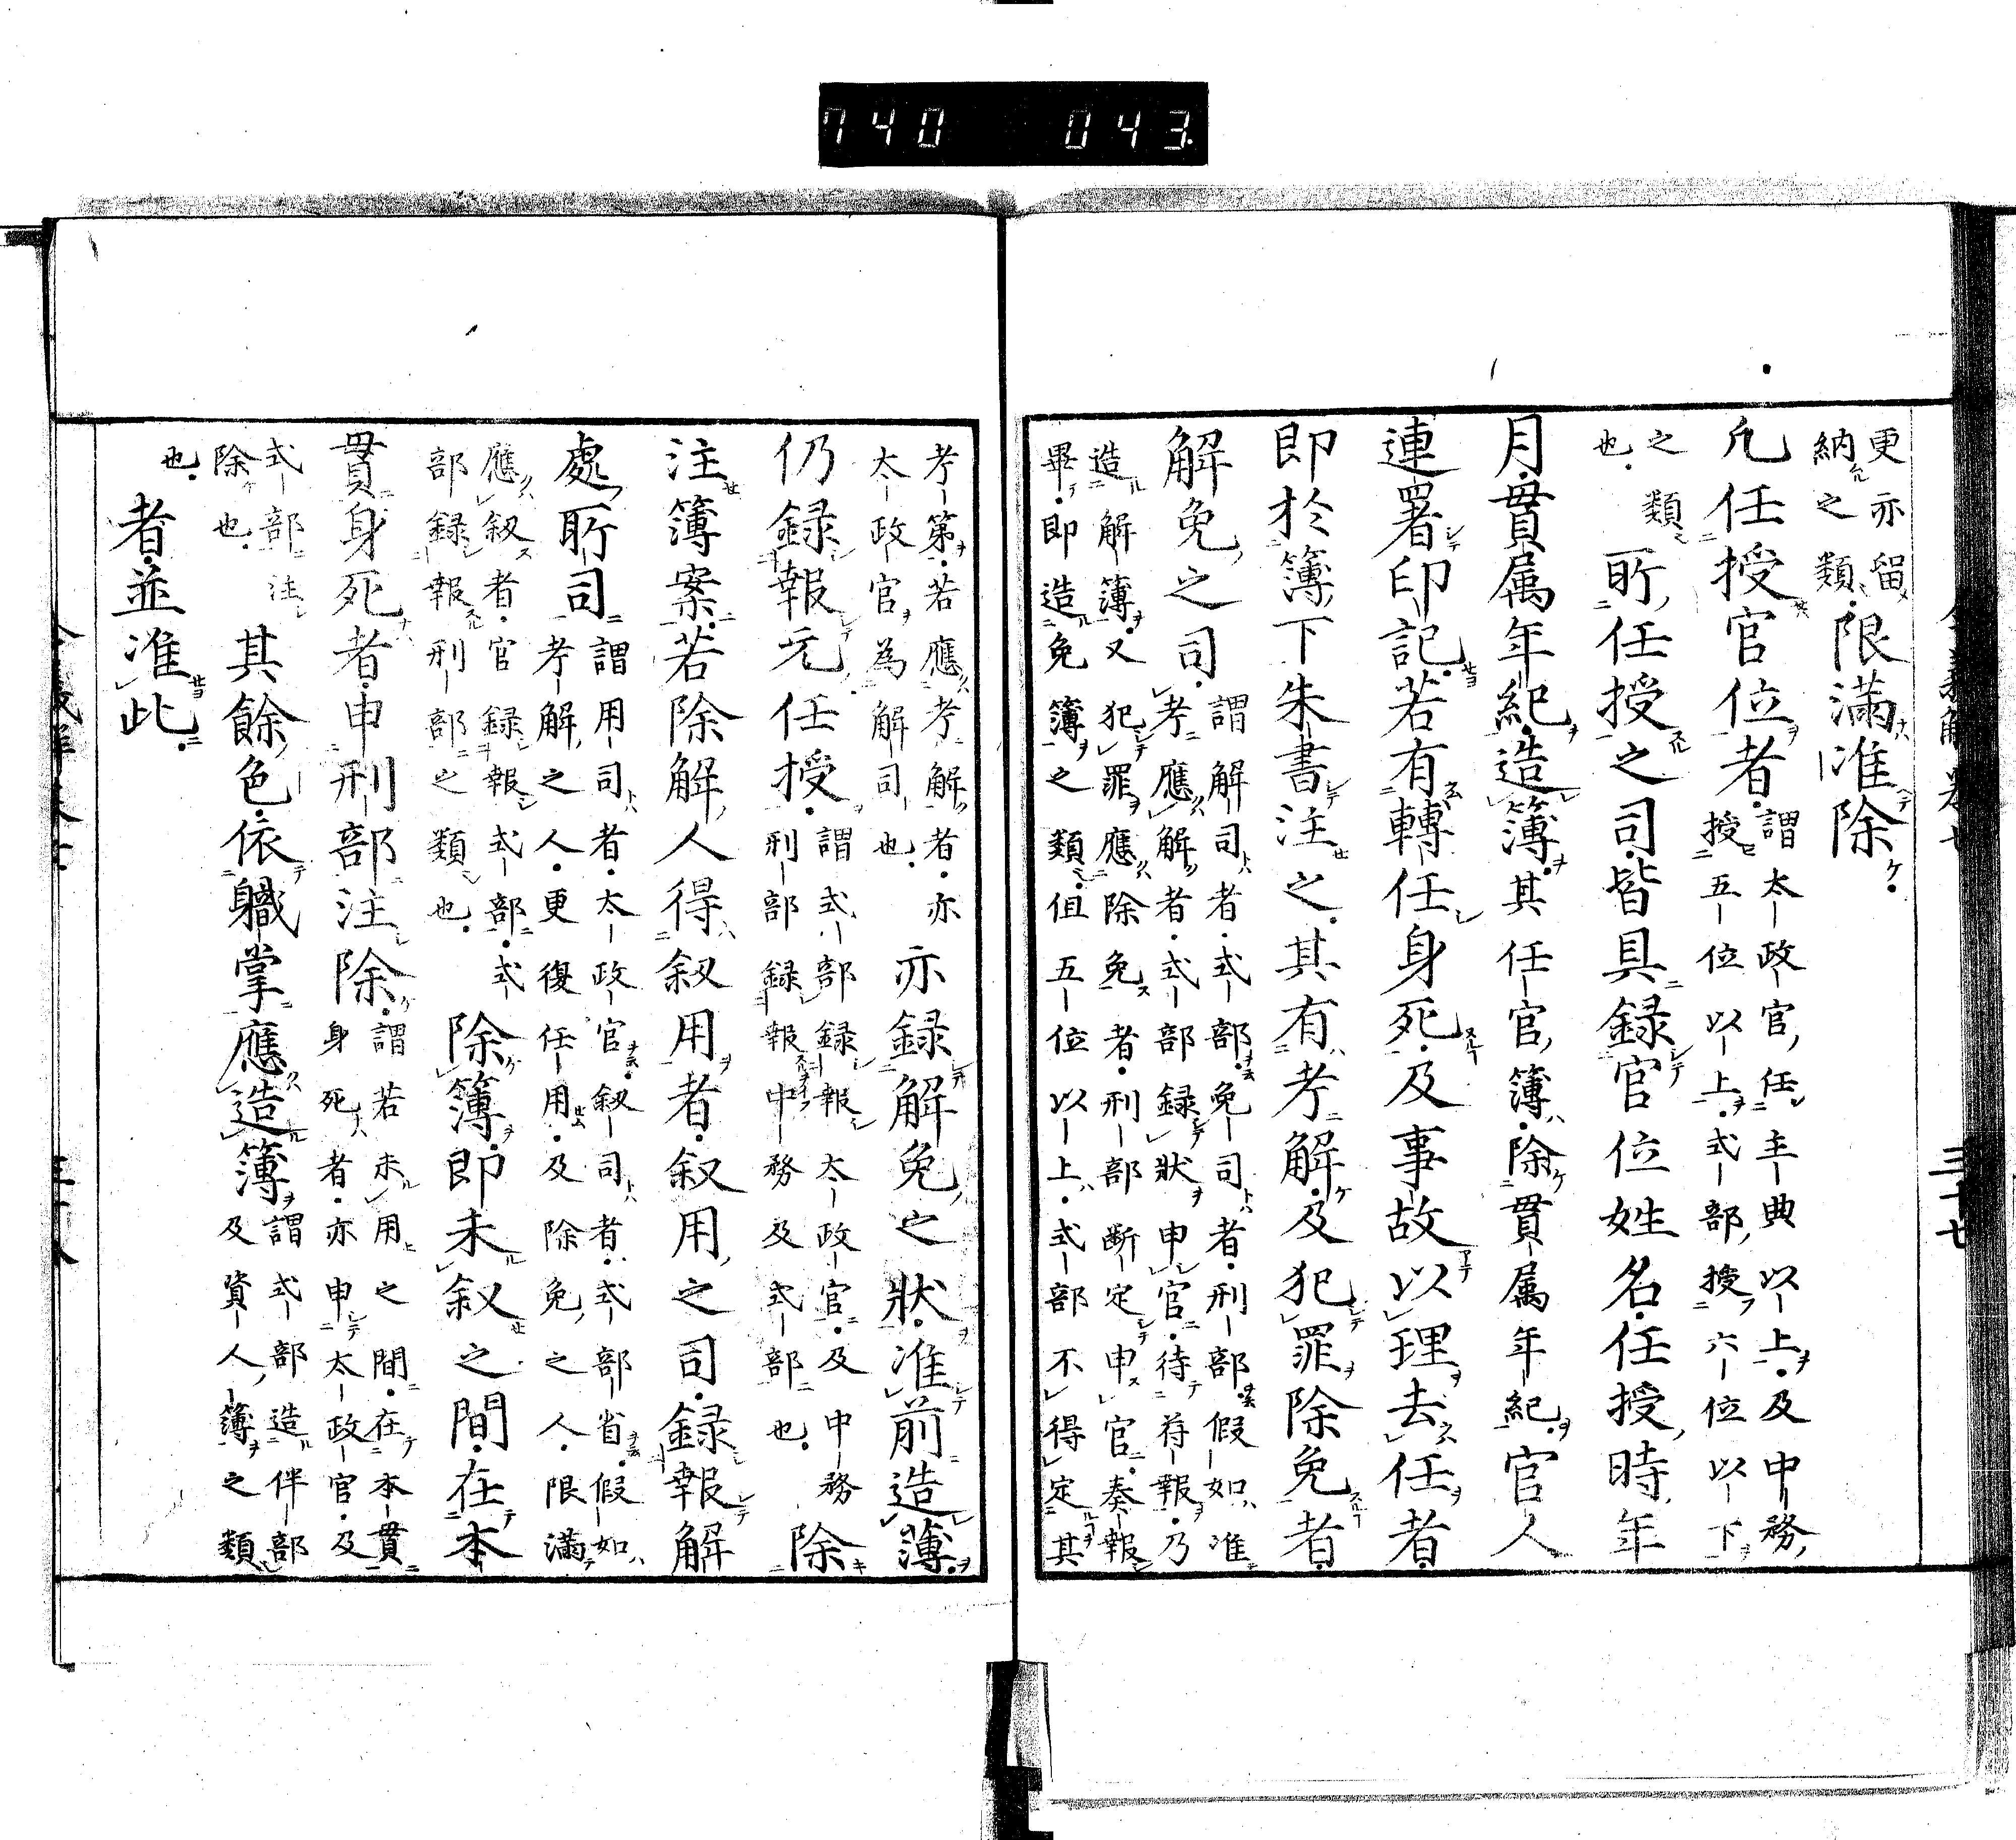 740 043
更亦留
納之類
限滿准除
凡任授官位者
謂太政官任主典以上及中務
授五位以上式部授六位以下
之類
也
所任授之司皆具録官位姓名任授時年
月貫属年紀造簿其任官簿除貫属年紀官人
連署印記若有轉任身死及事故以理去任者
即於簿下朱書注之其有考解及犯罪除免者
解免之司
謂解司者式部免司者刑部假如准
考應解者式部録狀申官待符報乃
造解簿又犯罪應除免者刑部断定申官奏報
畢即造免簿之類但五位以上式部不得定其
考第若應考解者亦
太政官為解司也
亦録解免之狀准前造薄
仍録報元任授
謂式部録報太政官及中務
刑部録報中務及式部也
除
注簿案若除解人得叙用者叙用之司録報解
處所司
謂用司者太政官叙司者式部省假如
考解之人更復任用及除免之人限滿
應叙者官録報式部式
部録報刑部之類也
除簿即未叙之間在本
貫身死者申刑部注除
謂若未用之間在本貫
身死者亦申太政官及
式部注
除也
其餘色依職掌應造簿
謂式部造伴部
及資人簿之類
也
者並准此